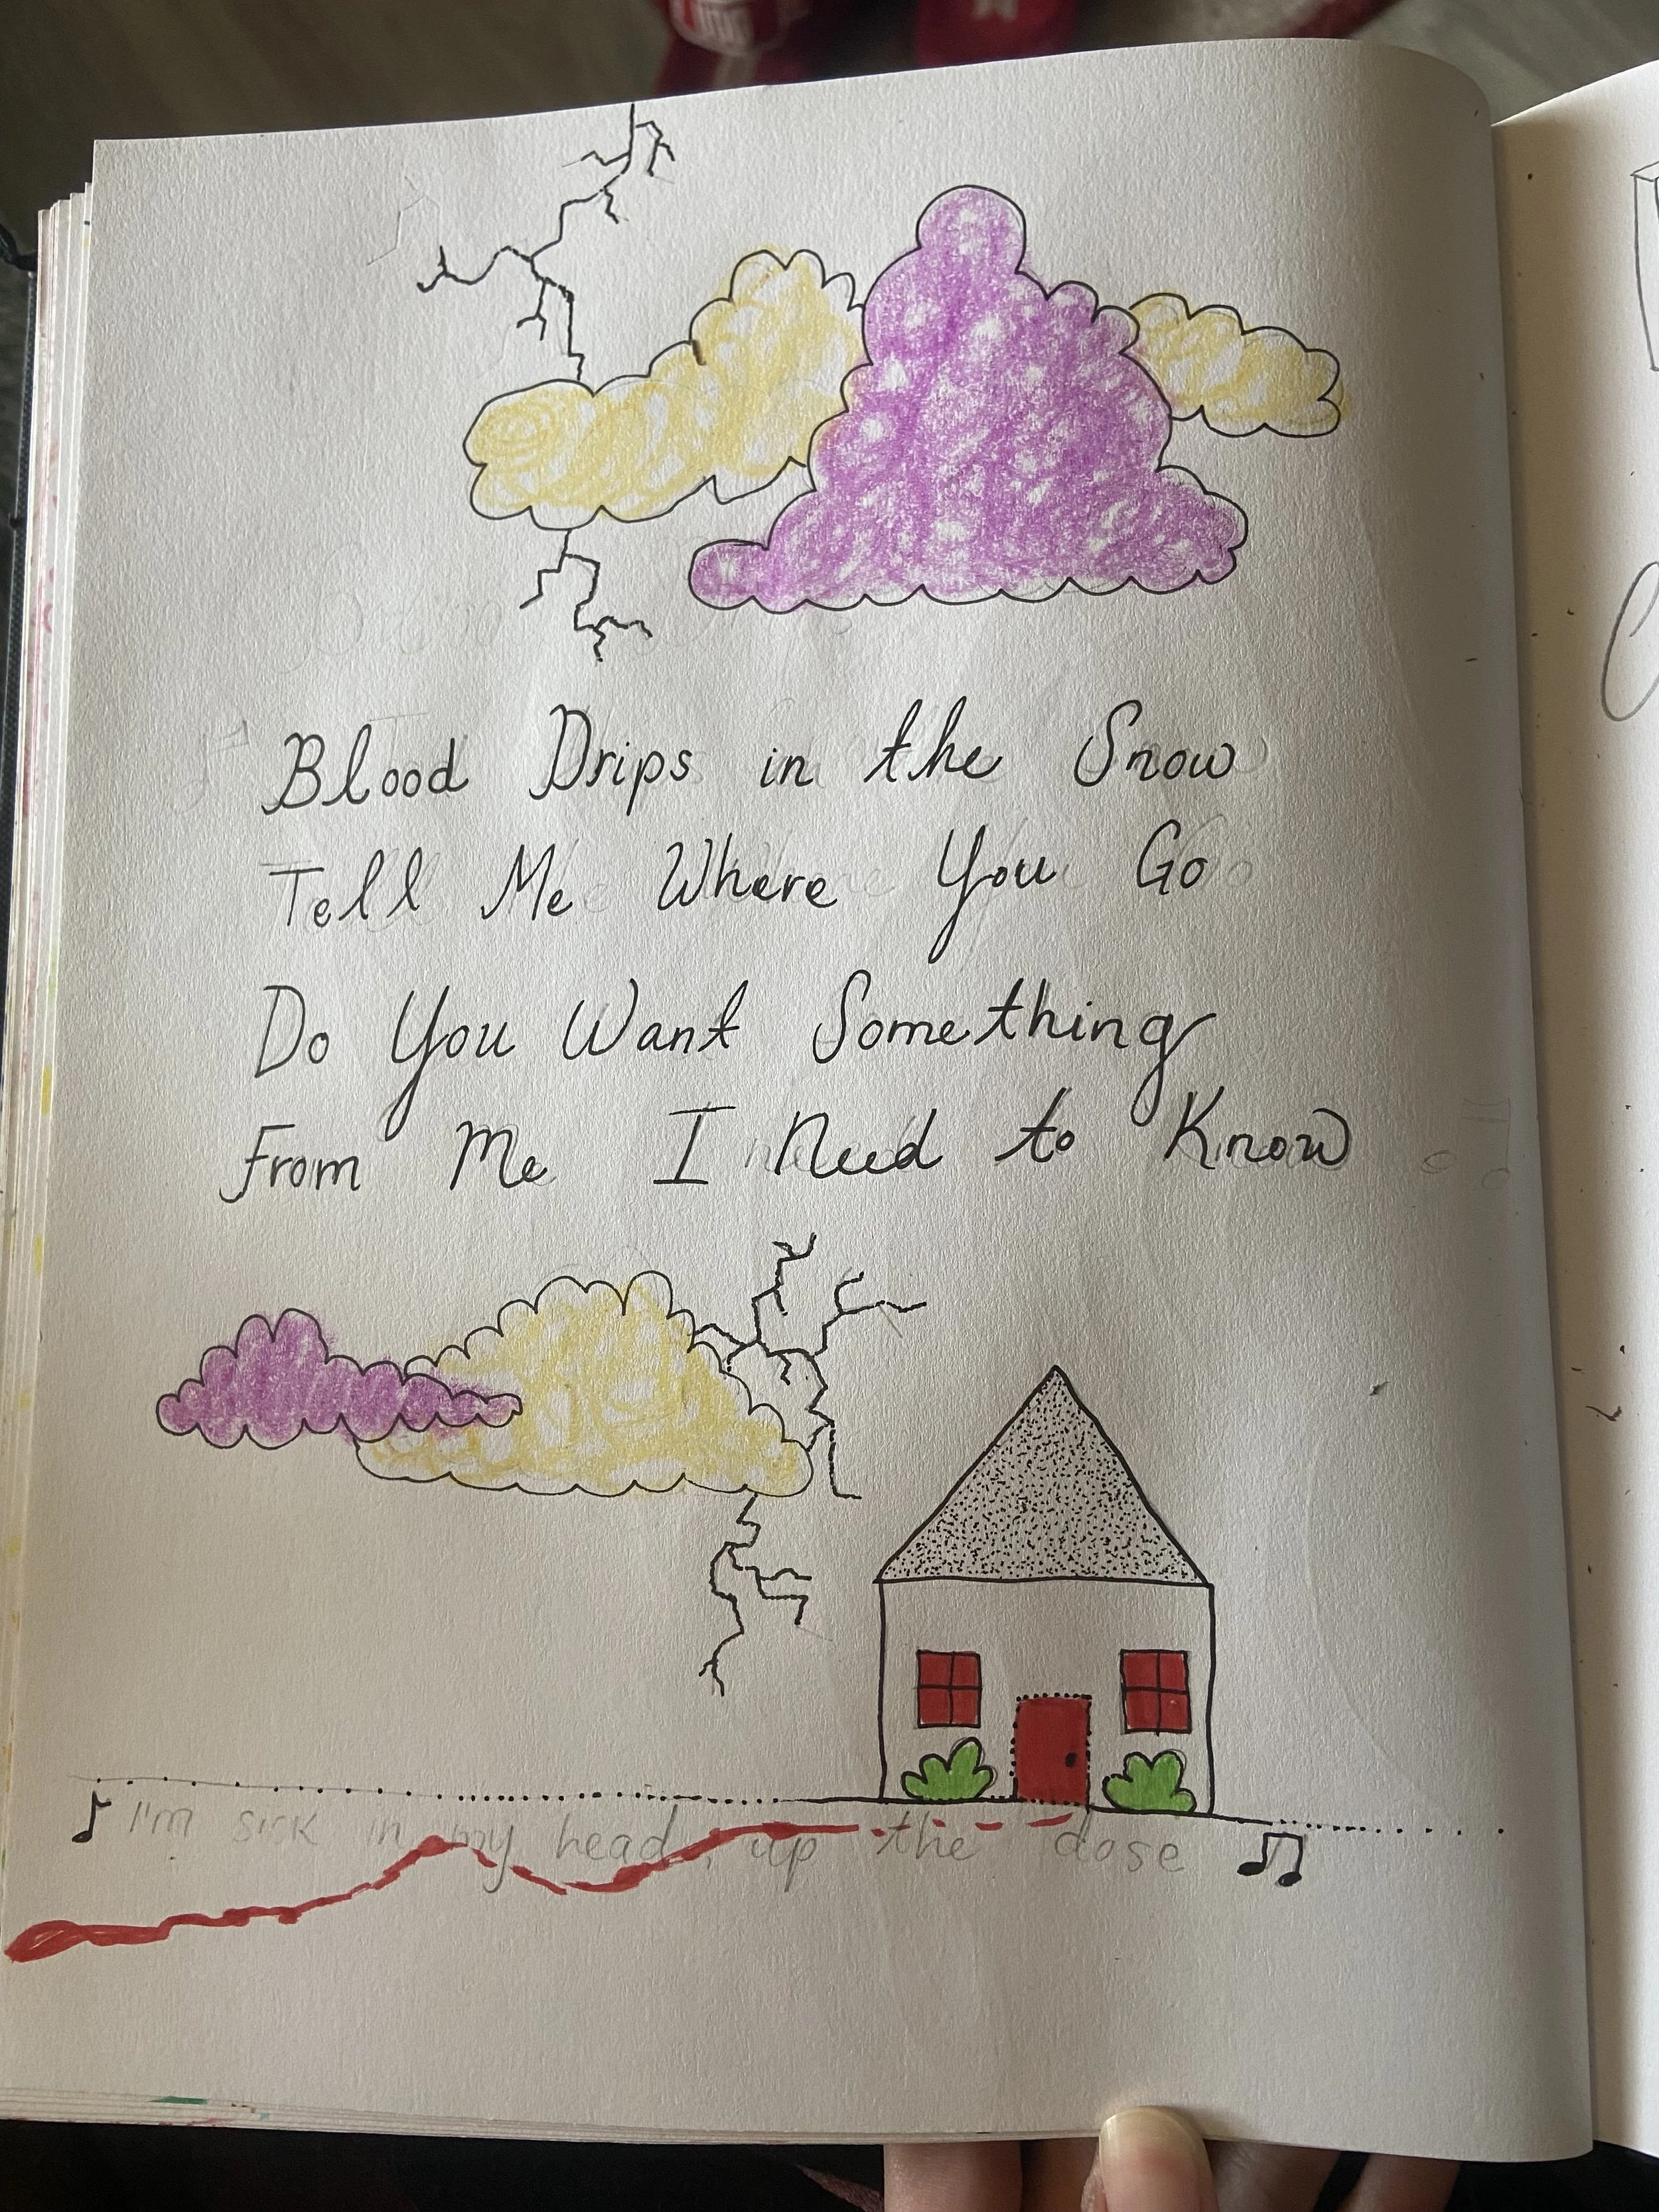 Blood Drips in the Snow
Tell Me Where You Go
Do You Want Something
From Me I Need to Know
I'm sick in my head, up the dose